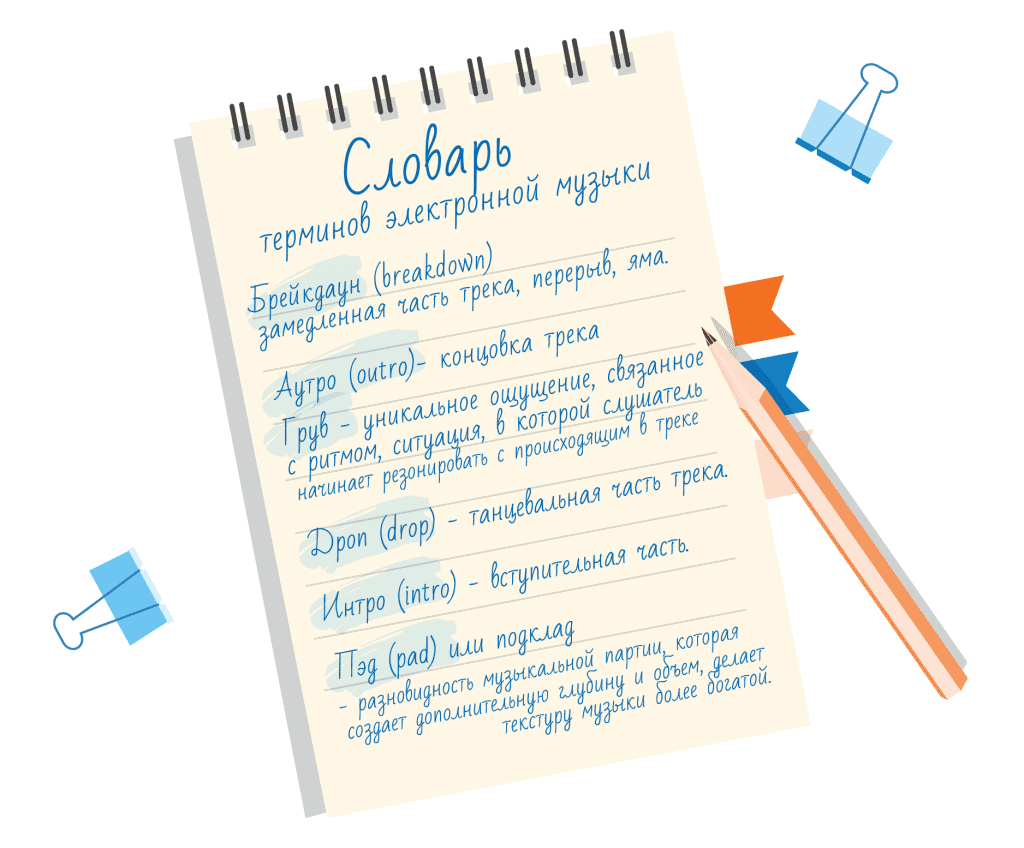 Словарь
терминов электронной музыки
Брейкдаун (breakdown)
замедленная часть трека, перерыв, яма.
Аутро (outro)- концовка трека
Грув - уникальное ощущение, связанное
с ритмом, ситуация, в которой слушатель
начинает резонировать с происходящим в треке
Дроп (drop) - танцевальная часть трека.
Интро (intro) - вступительная часть.
Пэд (pad) или подклад
- разновидность музыкальной партии, которая
создает дополнительную глубину и объем, делает
текстуру музыки более богатой.